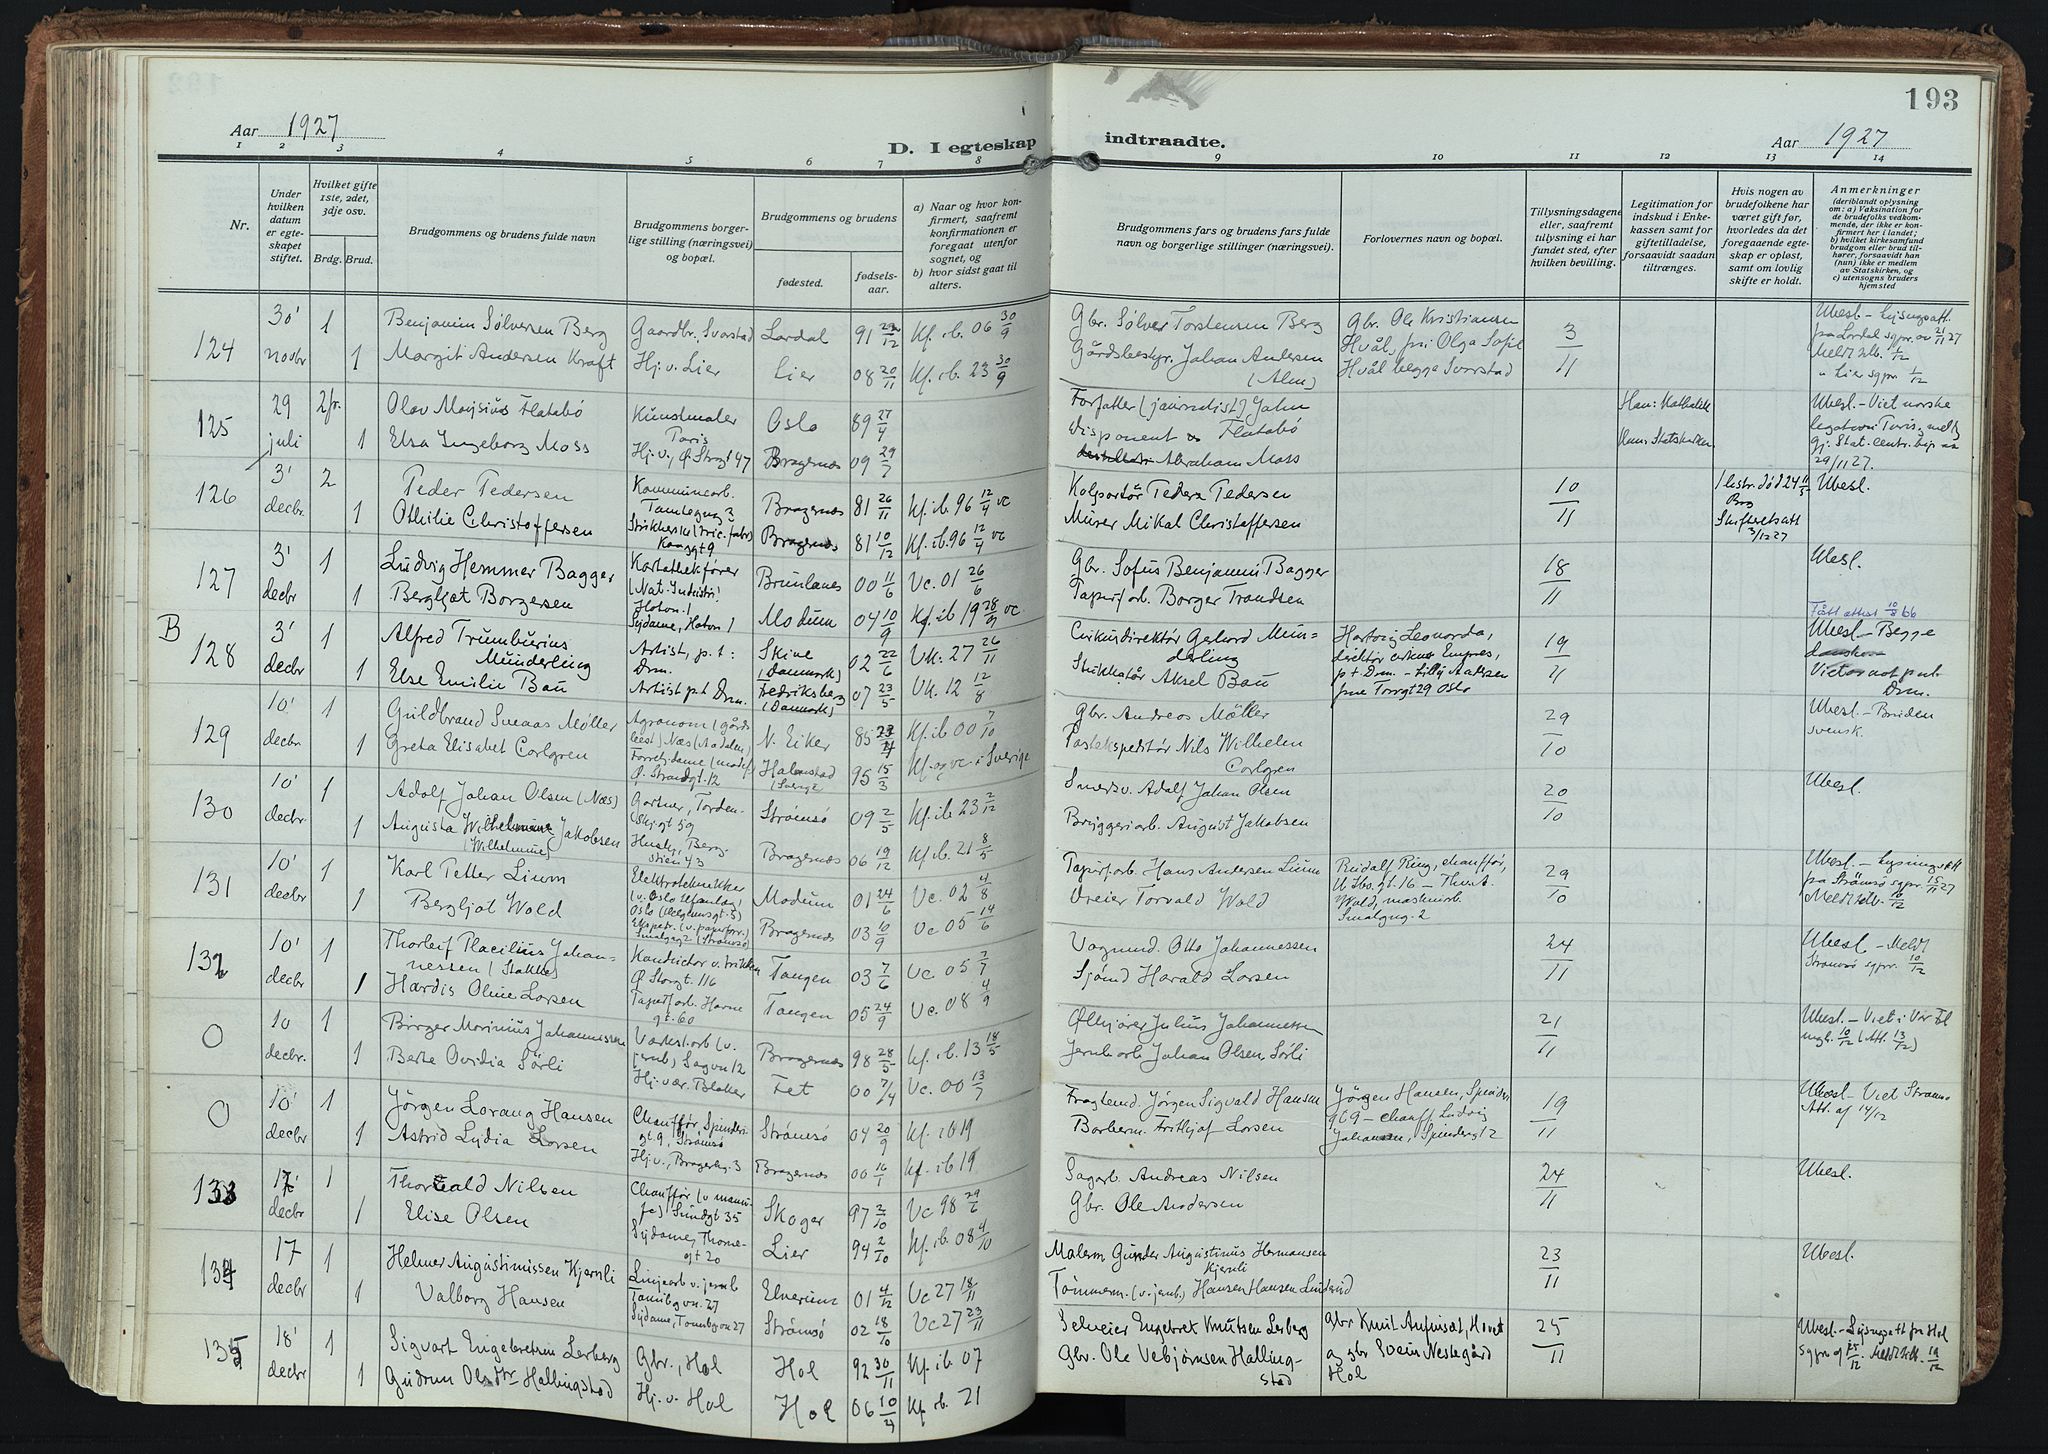 193
Aar 1927
D. I egteskap indtraadte.
Aar 1927
1 2 3 4 5 6 7 8 9 10 11 12 13 14
Nr.
Under hvilken datum er egteskapet stiftet.
Hvilket gifte 1ste, 2det, 3dje osv.
Brdg. Brud.
Brudgommens og brudens fulde navn
Brudgommens borgerlige stilling (næringsvei) og bopæl.
Brudgommens og brudens
fødested.
fødselsaar.
a) Naar og hvor konfirmert, saafremt konfirmationen er foregaat utenfor sognet, og
b) hvor sidst gaat til alters.
Brudgommens fars og brudens fars fulde navn og borgerlige stillinger (næringsvei).
Forlovernes navn og bopæl.
Tillysningsdagene eller, saafremt tillysning ei har fundet sted, efter hvilken bevilling.
Legitimation for indskud i Enkekassen samt for giftetilladelse, forsaavidt saadan tiltrænges.
Hvis nogen av brudefolkene har været gift før, hvorledes da det foregaaende egteskap er opløst, samt om lovlig skifte er holdt.
Anmerkninger
(deriblandt oplysning om: a) Vaksination for de brudefolks vedkommende, der ikke er konfirmert her i landet; b) hvilket kirkesamfund brudgom eller brud tilhører, forsaavidt han (hun) ikke er medlem av Statskirken, og c) utensogns bruders hjemsted
124 30' novbr 1 Benjamin Sølversen Berg Gaardbr. Svarstad Lardal 91 Kf. ib. 06 30/9 Gbr. Sølver Torstensen Berg Gbr. Ole Kristiansen 3/11 Ubesl. - Lysningsatt.
1 Margit Andersen Kraft Hj. v. Lier Lier 08 20/11 Kf. ib. 23 30/9 Gårdsbestyr. Johan Andersen (Alm) Hvål, fru Olga Sofie Hvål begge Svarstad fra Lardal sgpr. av 21/11 27
125 29 juli 2 fr. Olav Aloysius Flatabö Kunstmaler Paris Oslo 89 27/4 Forfatter (journalist) John Flatabö Han: Katholik Ubesl. - Viet norske legation Paris,
1 Elsa Ingeborg Moss Hj. v., Ø. Storgt 47 Bragernæs 09 29/7 Disponent Abraham Moss Hun: Statskirken 29/11 27.
126 3' decbr. 2 Peder Pedersen Kommunearb. Bragernæs 81 26/11 Kf. ib. 96 12/4 vc Kolportör Peder Pedersen 10/11 Ubesl.
1 Othilie Christoffersen Bragernæs 81 10/12 Kf. ib. 96 12/4 vc Murer Mikal Christoffersen Skifteretsatt 3/12 27
127 3' decbr 1 Ludvig Hemmer Bagger Kartothekfører (Nat. Industri) Brunlanes 00 11/6 Vc. 01 26/6 Gbr. Sofus Benjamin Bagger 18/11 Ubesl.
1 Bergljot Borgersen Sydame, Hoton. 1 Modum 04 10/9 Kf. ib 19 28/9 vc. Papirfarb. Borger Trondsen
Fått attest 10/8 66
B 128 3' decbr 1 Alfred Trumburius Munderling Artist, p. t: Drm. Skive (Danmark) 02 22/6 Vk: 27 26/11 Cirkusdirektör Gerhard Munderling Hartvig Leonarda, direktör cirkus Empres, 19/11 Ubesl - Begge danskere
1 Else Emilie Bau Artist p. t Drm. Fredriksberg (Danmark) 07 23/5 Vk. 12 12/8 Stukkatör Aksel Bau p t Drm. - Lilly Aaltsen Torvgt 29 Oslo Drm.
129 10' decbr. 1 Guldbrand Sveaas Møller Agronom (gårdbest) Næs (Aadalen) N. Eiker 85 Kf. ib 00 7/10 Gbr. Andreas Møller 29/10 Ubesl. - Bruden svensk.
1 Greta Elisabet Corlgren Forretn.dame (mode) Ø. Strandgt. 12 Halmstad (Sverige 95 15/3 Kf. og vc. i Sverige Postekspeditör Nils Wilhelm Corlgren
130 10' decbr. 1 Adolf Johan Olsen (Næs) Gartner, Tordenskj.gt 59 Strømsø 09 2/5 Kf. ib 23 2/12 Smedsv. Adolf Johan Olsen 20/10 Ubesl.
1 Augusta Wilhelmine (Wilhelmine) Jakobsen Hush., Bergstien 43 Bragernæs 06 19/12 Kf. ib. 21 8/5 Bryggeriarb. August Jakobsen
131 10' decbr 1 Karl Petter Lium Elektrotekniker Modum 01 24/6 Vc. 02 4/8 Papirfarb. Hans Andersen Lium Reidolf Ring, chauffør, 29/10 Ubesl. - Lysningsatt
1 Bergljot Wold Bragernæs 03 10/9 Vc 05 14/6 Dreier Torvald Wold Wold, maskinarb. Smalgng. 2 fra Strømsø sgpr. 15/11 27
132 10' decbr. 1 Thorleif Placilius Johannessen (Stokke) Konductör v. trikken Ø Storgt. 116 Tangen 03 7/6 Vc. 05 2/7 Vognmd. Otto Johannessen 24/11 Ubesl. - Meldt Strømsø sgpr. 10/12
1 Hærdis Oline Larsen Papirfarb. Havnegt. 60 Tangen 05 24/9 Vc. 08 4/9 Sjömd Harald Larsen
0 10 decbr. 1 Birger Marinius Johannessen Værkst.arb (v. jernb) Sagvn 12 Bragernæs 98 28/5 Kf. ib. 13 18/5 Ølkjører Julius Johannessen 21/11 Ubesl. - Viet i Vor Fr.
1 Berte Ovidia Sörli Hj. vær. Blaker Fet 00 7/4 Vc. 00 13/7 Jernb.arb Johan Olsen Sörli 10/12 (Att. 13/12)
0 10' decbr 1 Jörgen Lorang Hansen Chauffør, Spindergt 9, Strömsö Strömsö 04 20/9 Kf. ib 19 Fragtemd. Jörgen Sigvald Hansen Jörgen Hansen, Spinder gt 9 - chauff Ludvig 19/11 Ubesl - Viet Strømsø
1 Astrid Lydia Larsen Hj. v., Bragerhg. 3 Bragernæs 00 16/1 Kf. ib 19 Barberm. Frithjof Larsen Johansen, Spindergt 2 Att. af 14/12
133 17' decbr 1 Thorvald Nilsen Chauffør Sundgt 35 Skoger 97 2/10 Vc 98 29/6 Sagarb. Andreas Nilsen 24/11 Ubesl.
1 Elise Olsen Sydame, Thornegt 20 Lier 94 2/10 Kf. ib. 08 4/10 Gbr. Ole Andersen
134 17 decbr. 1 Helmer Augustinussen Kjernli Linjearb v. jernb Tomtbgvn. 27 Elverum 01 4/12 Vc 27 18/11 Malerm Gunder Augustinus Hermansen Kjernli 23/11 Ubesl.
1 Valborg Hansen Sydame, Tomtbgvn 27 Strømsö 02 18/10 Vc 27 23/11 Tømmerm. (v. jernb.) Hansen Hansen Linderud
135 18' decbr 1 Sigvart Engebretsen Lerberg Gbr., Hol Hol 92 30/11 Kf. ib. 07 Selveier Engebret Knutsen Lerberg Gbr Knut Aufinset, Hovet 25/11 Ubesl - Lysningsatt fra Hol
1 Gudrun Olsdtr Hallingstad Hj. v. Hol Hol 06 10/4 Kf. ib. 21 Gbr. Ole Vebjørnsen Hallingstad og gbr Svein Nestegård Hol sgpr